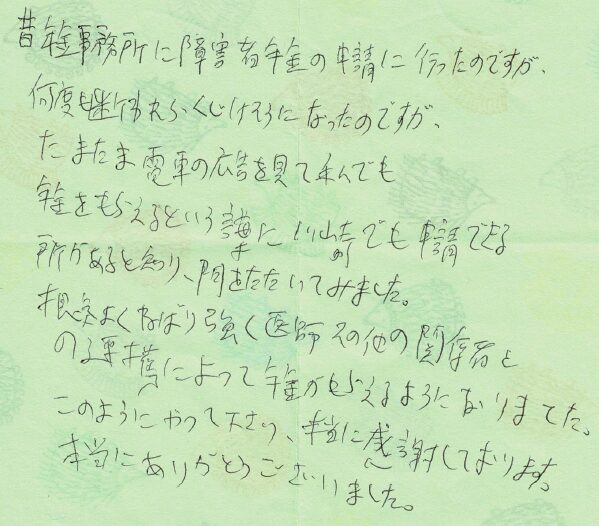 昔年金事務所に障害者年金の申請に行ったのですが、
何度も断られくじけそうになったのですが、
たまたま電車の広告を見て私でも
年金をもらえるという事に川崎でも申請できる
所があると知り、門をたたいてみました。
根気よくねばり強く医師その他の関係者と
の連携によって年金がもらえるようになりました。
このようにやって下さり、本当に感謝しております。
本当にありがとうございました。